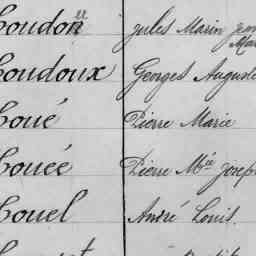 Coudon Jules Marin Jean
Mar
Coudoux Georges August
Coué Pierre Marie
Couée Pierre Mie Joseph
Couel André Louis.